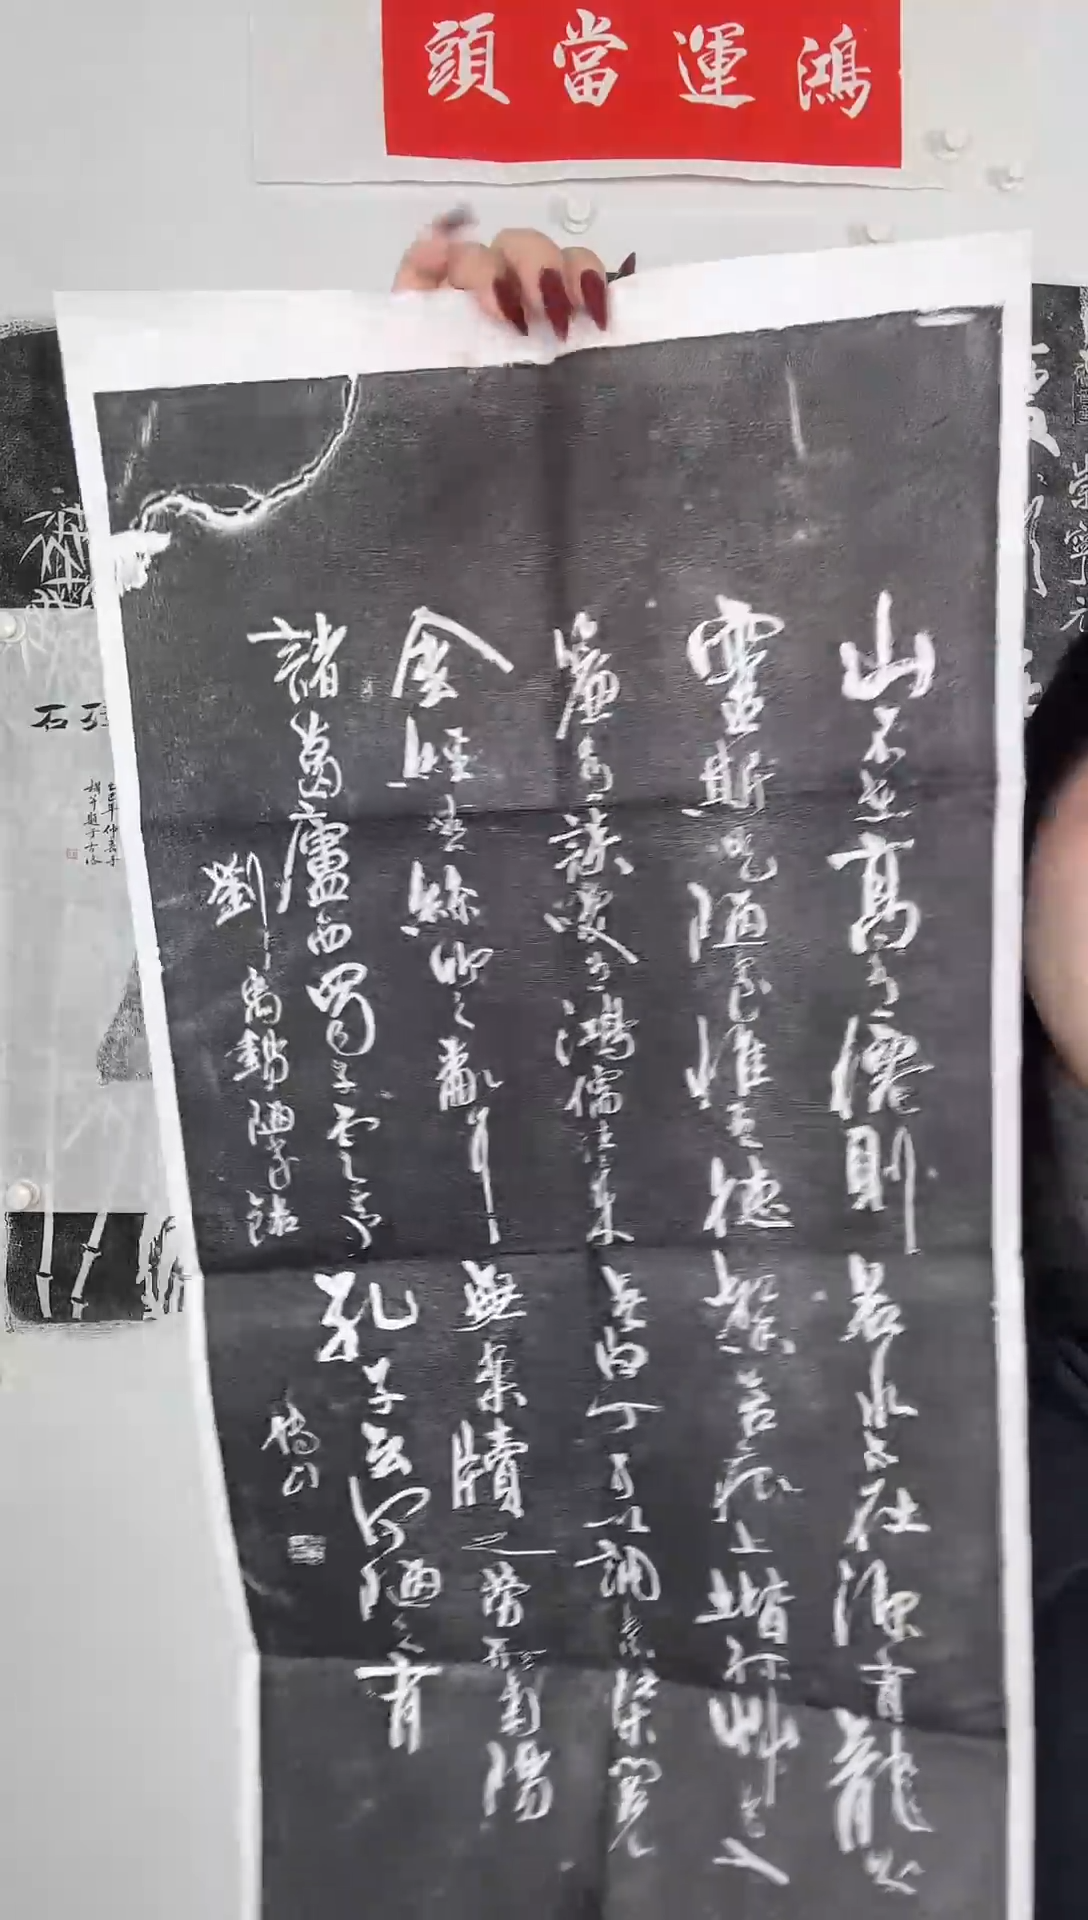 鴻運當頭
山不在高有僊則名水不在深有龍則
靈斯是陋室惟吾德馨苔痕上堦綠艸色入
簾青談笑有鴻儒往來無白丁可以調素琴閱
金經無絲竹之亂耳無案牘之勞形南陽
諸葛廬西蜀子雲亭孔子云何陋之有
劉禹錫陋室銘
傅山
崇寧元
石
乙巳年仲春于